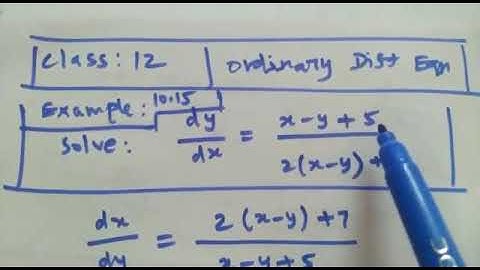 Class: 12 ordinary Diff Eqn
Example: 10.15
Solve: dy/dx = x-y+5 / 2(x-y)+
dx/dy = 2(x-y)+7 / x-y+5